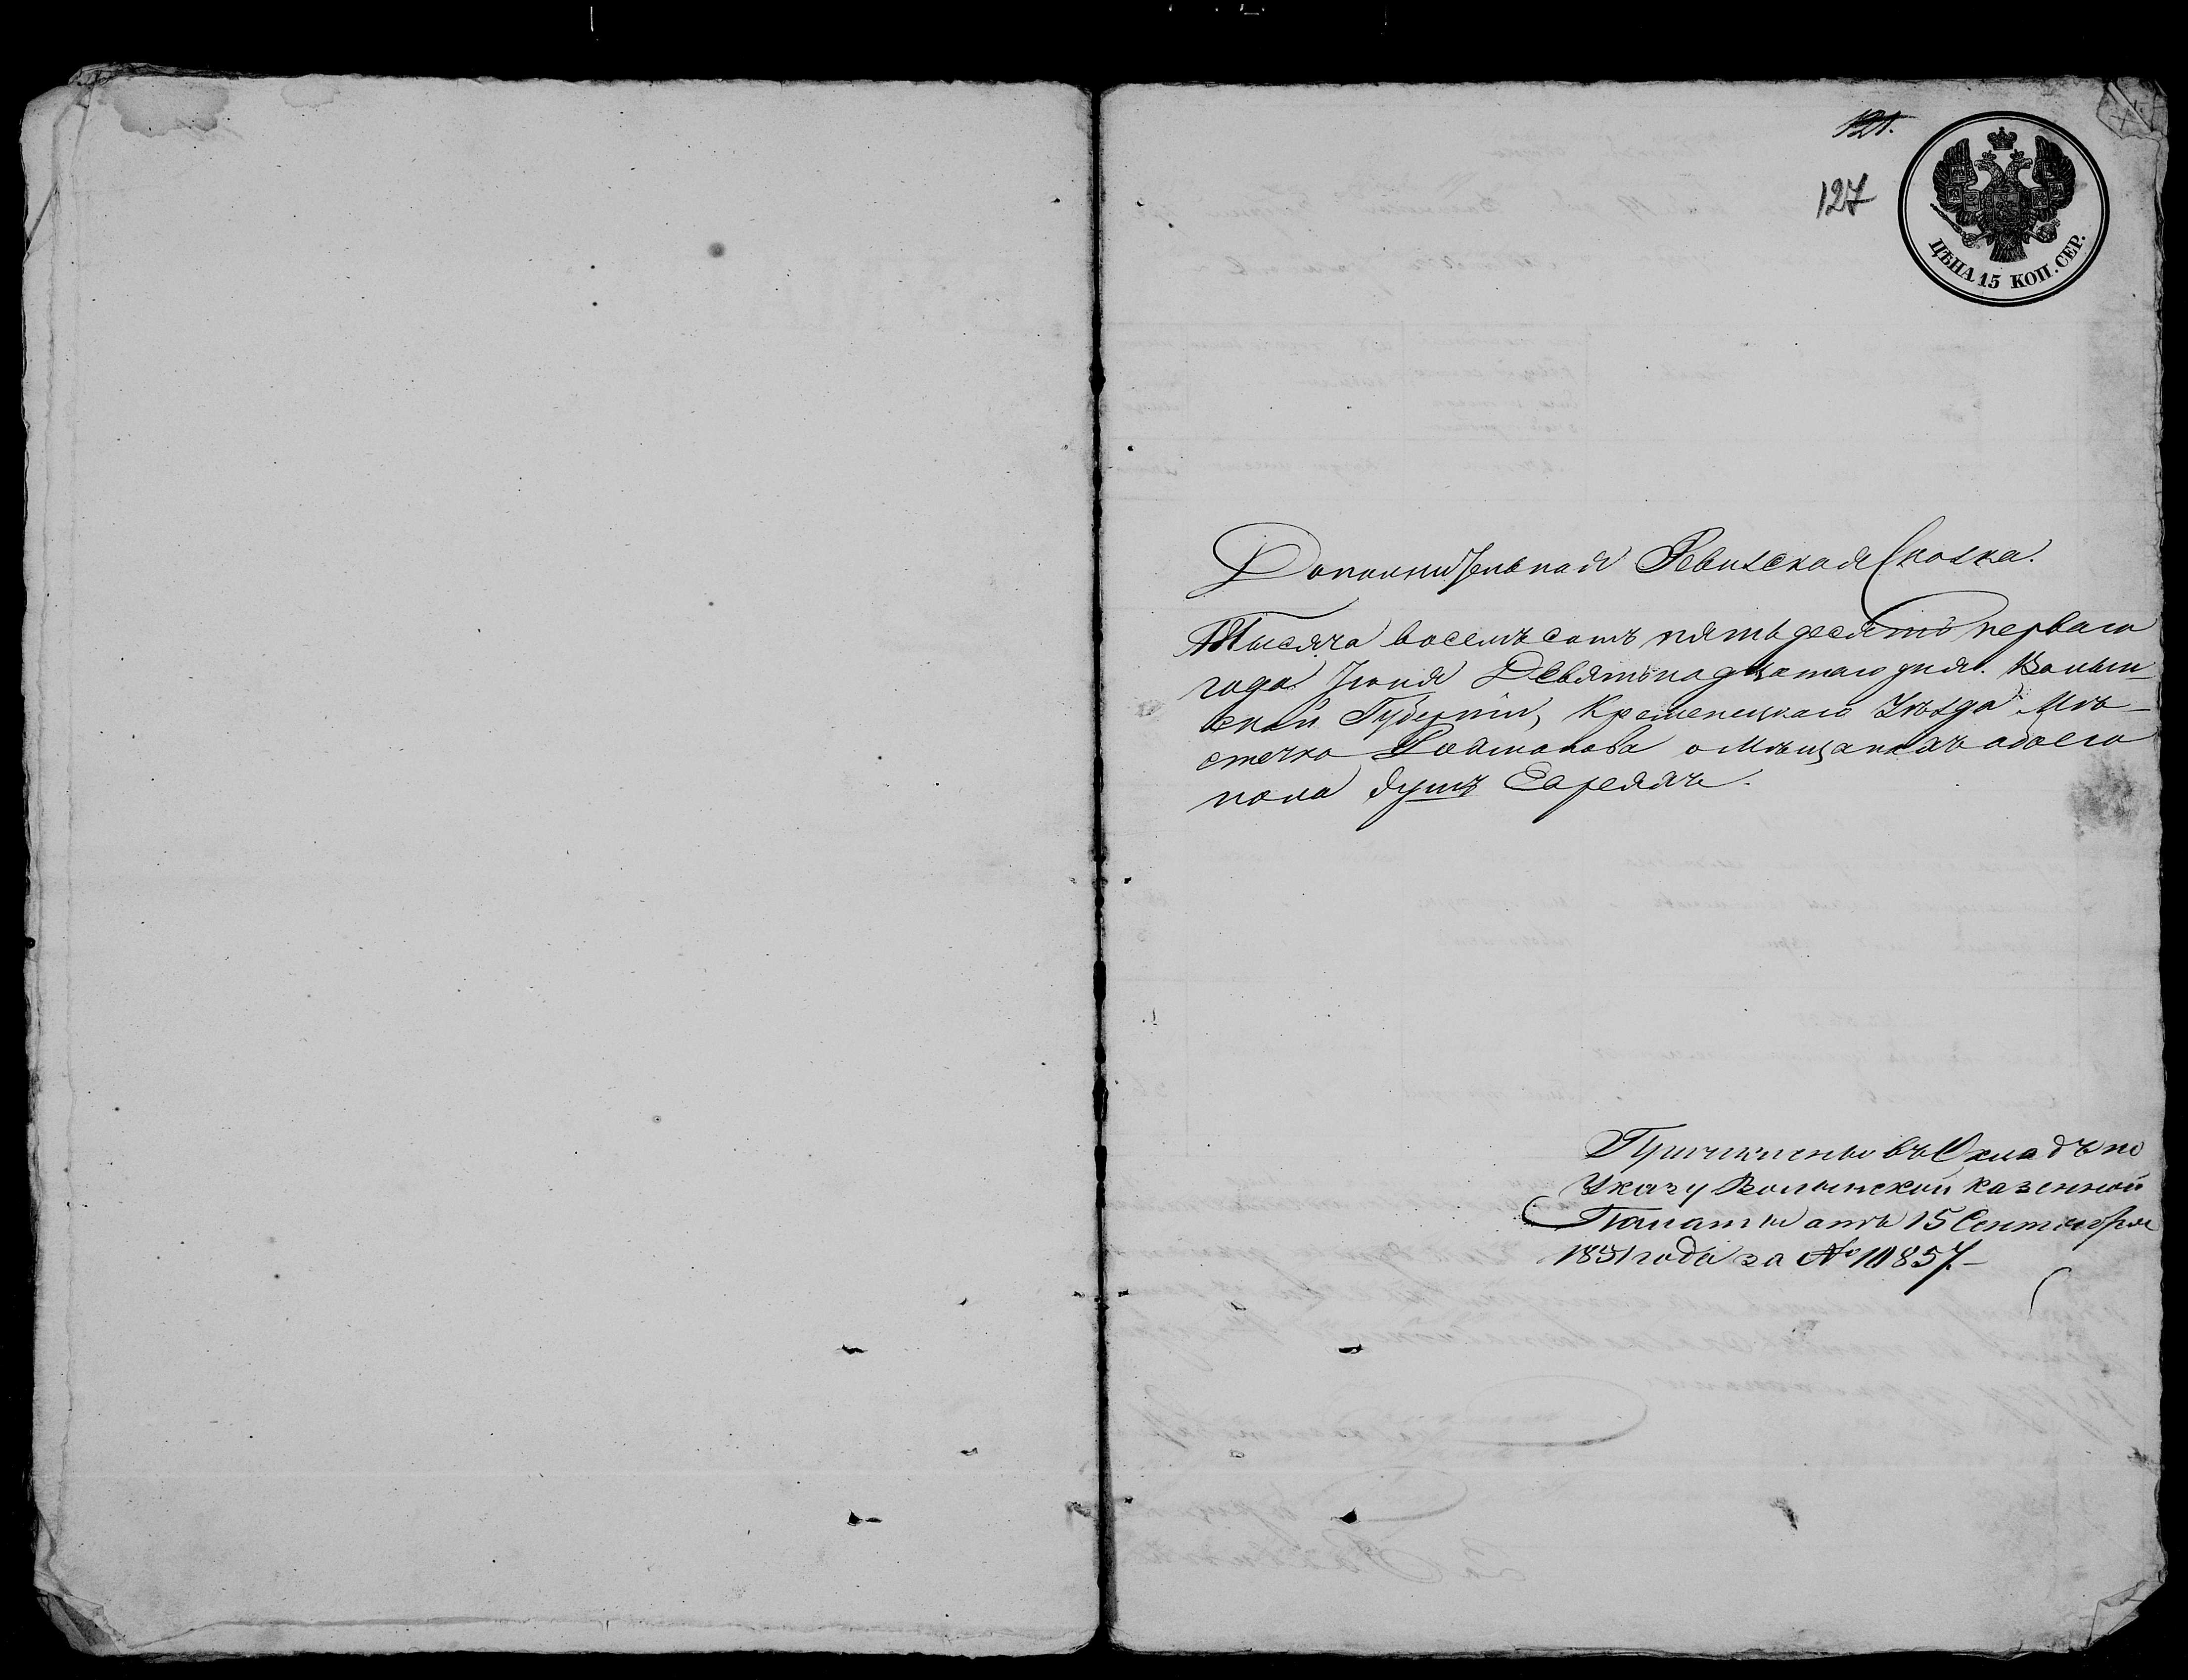 121.
127
ЦѢНА 15 КОП. СЕР.
Дополнительная Ревизская Сказка.
Тысяча восемъ сотъ пятьдесятъ перваго
года Іюня Девятьнадцатаго дня. Волын-
ской Губерніи, Кременецкаго Уѣзда Мѣ-
стечка о Мѣщанахъ обоего
пола душъ Евреяхъ.
Причислены въ Окладъ по
Указу Волынской казенной
Палаты отъ 15 Сентября
1851 года за №